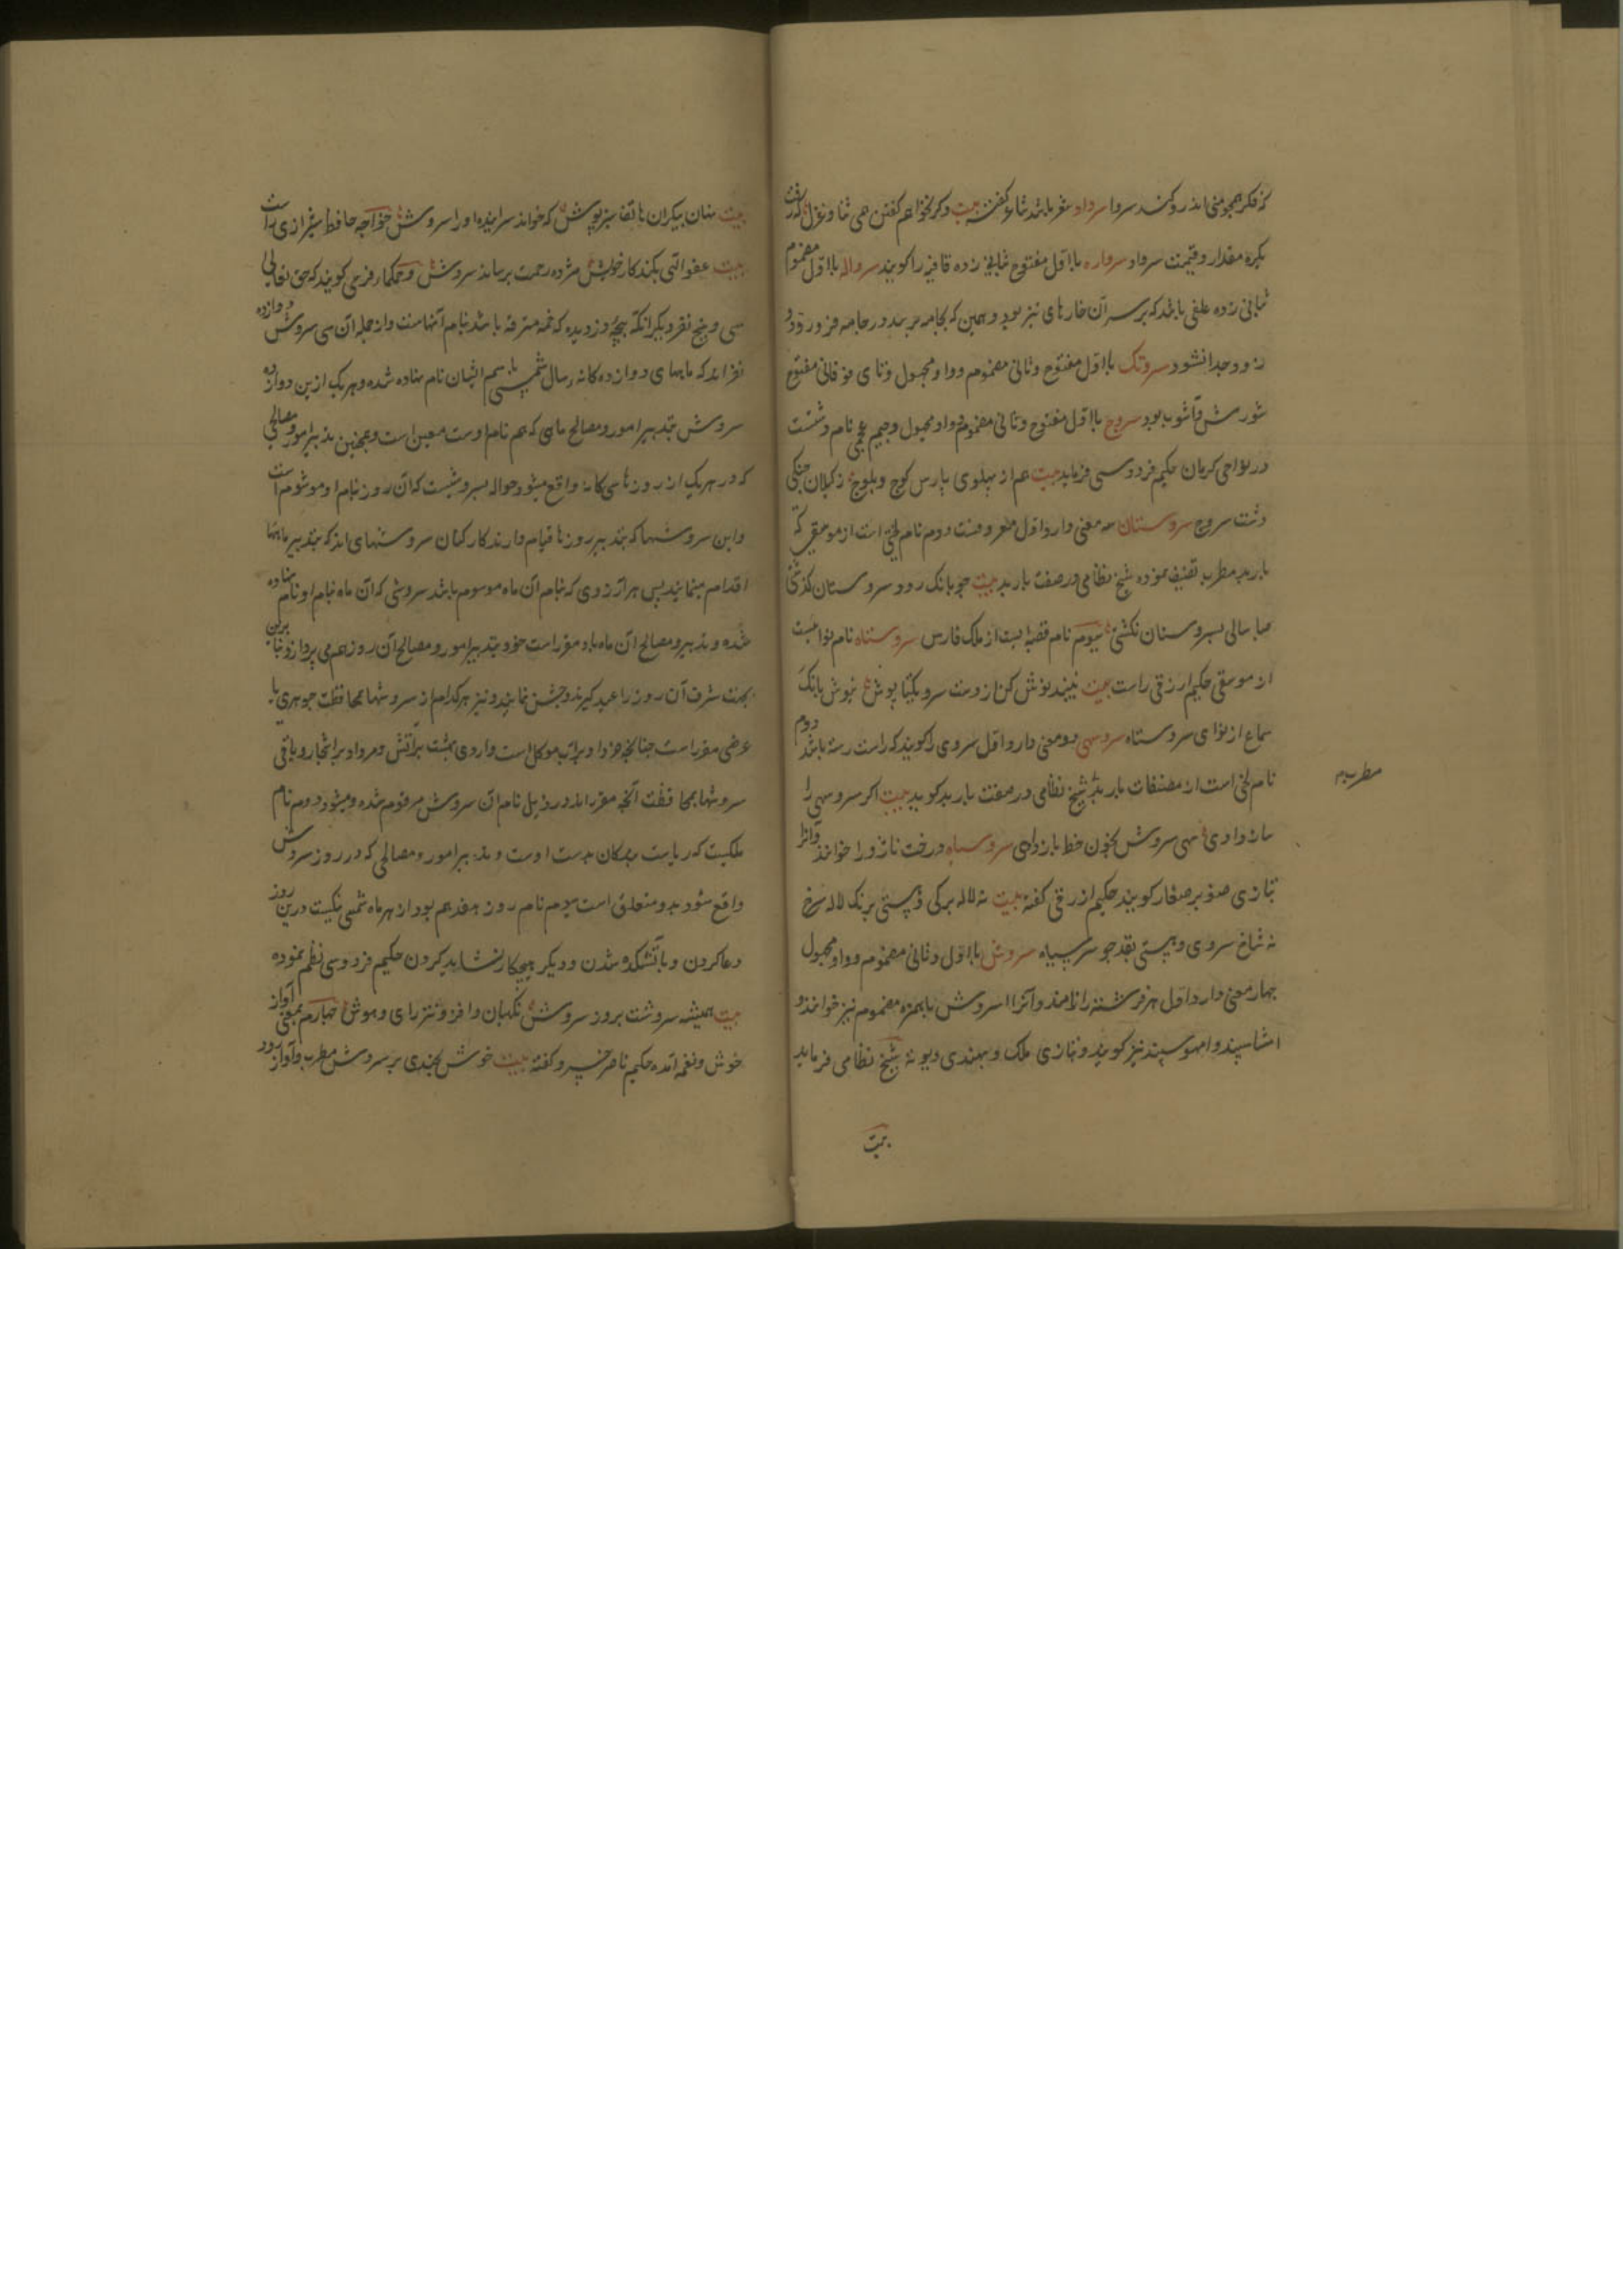 که فکر همچو منی اندرو کند سروا سرواد شعر باشد شاعر گفته بیت دگر نخواهم گفتن همی ثنا و غزل که رفت
یکره مقدار و قیمت سرواد سرواره با اول مفتوح بثانی زده قافیه را گویند سرواله با اول مضموم
ثبانی زده علفی باشد که بر سر آن خارهای تیز بود و همین که بجامه رسد در جامه فرو رود و
زود جدا نشود سروتک با اول مفتوح و ثانی مضموم و واو مجهول و تای فوقانی مفتوح
شورش و آشوب بود سروج با اول مفتوح و ثانی مضموم و واو مجهول و جیم عجمی نام دشتست
در نواحی کرمان حکیم فردوسی فرماید بیت هم از پهلوی پارس کوچ و بلوچ ز گیلان جنگی
دشت سروج سروستان سه معنی دارد اول معروفست دوم نام لحنی است از موسیقی که
باربد مطرب تصنیف نموده شیخ نظامی در صفت باربد بیت چو بانک رود سروستان گذشتی
صبا سالی بسروستان نگشتی سیوم نام قصبه ایست از ملک فارس سروستاه نام نوائیست
از موسقی حکیم ارزقی راست بیت نبید نوش کن از دست سرو یکتا پوش نیوش بانک
سماع از نوای سروستاه سروسهی دو معنی دارد اول سروی را گویند که راست رسته باشد دوم
نام لحنی است از مصنفات باربد شیخ نظامی در صفت باربد گوید بیت اگر سروسهی را
مطرب
ساز دادی سهی سروش بخون خط باز دادی سروسیاه درخت ناژو را خوانند و آنرا
بتازی صنوبر صغار گویند حکیم ازرقی گفته بیت نه لاله برگی و پستی برنک لاله سرخ
نه شاخ سروی و بیستی بقد چو سرو سیاه سروش با اول و ثانی مضموم و واو مجهول
چهار معنی دارد اول هر فرشته را نامند و آنرا اسروش با همزه مضموم نیز خوانند و
امشاسپند و امهوسپند نیز گویند و بتازی ملک و بهندی دیوته شیخ نظامی فرماید
بیت
بیت بنان پیکران هاتف سبزپوش که خواند سراینده او را سروش خواجه حافظ شیرازی راست
بیت عفو الهی بکند کار خویش مژده رحمت برساند سروش و حکماء فرس گویند که حق تعالی
سی و پنج نفر و یکرانکه پنجه دزدیده که خمسه مسترقه باشد بنام آنهاست و از جمله آن سی سروش دوازده
نفر اند که ماههای دوازده کانه سال شمسی باسم ایشان نام نهاده شده و هر یک از ین دوازده
سروش بتدبیر امور و مصالح ماهی که هم نام اوست معین است و همچنین تدبیر امور و مصالحی
که در هر یک از روزهای سی کانه واقع میشود حواله بسروشیست که آن روز بنام او موسوم است
و این سروشها که بتدبیر روزها قیام دارند کارکنان سروشهای اند که بتدبیر ماهها
اقدام مینمایند پس هر آن روزی که بنام آن ماه موسوم باشد سروشی که آن ماه بنام او نام نهاده
شده و تدبیر و مصالح آن ماه باو مقرر است خود بتدبیر امور و مصالح آن روز هم می پردازد بنابرین
بجهت شرف آن روز را عید گیرند و جشن نمایند و نیز هر کدام از سروشها بمحافظت جوهری یا
عرضی مقرر است چنانکه خرداد بر آب موکل است و اردی بهشت بر آتش و مرداد بر اشجار و باقی
سروشها بمحافظت آنچه مقرر اند در ذیل نام آن سروش مرقوم شده و میشود دوم نام
ملکیست که ریاست بندگان بدست اوست و تدبیر امور و مصالحی که در روز سروش
واقع شود بدو متعلق است سوم نام روز هفدهم بود از هر ماه شمسی نیکست درین روز
دعا کردن و بآتشکده شدن و دیگر هیچکار نشاید کردن حکیم فردوسی نظم نموده
بیت همیشه سروشت بروز سروش نگهبان و افزونتر رای و هوش چهارم بمعنی آواز
خوش و نغمه آمده حکیم ناصر خسرو گفته بیت خوش بخندی بر سروش مطرب و آواز رود